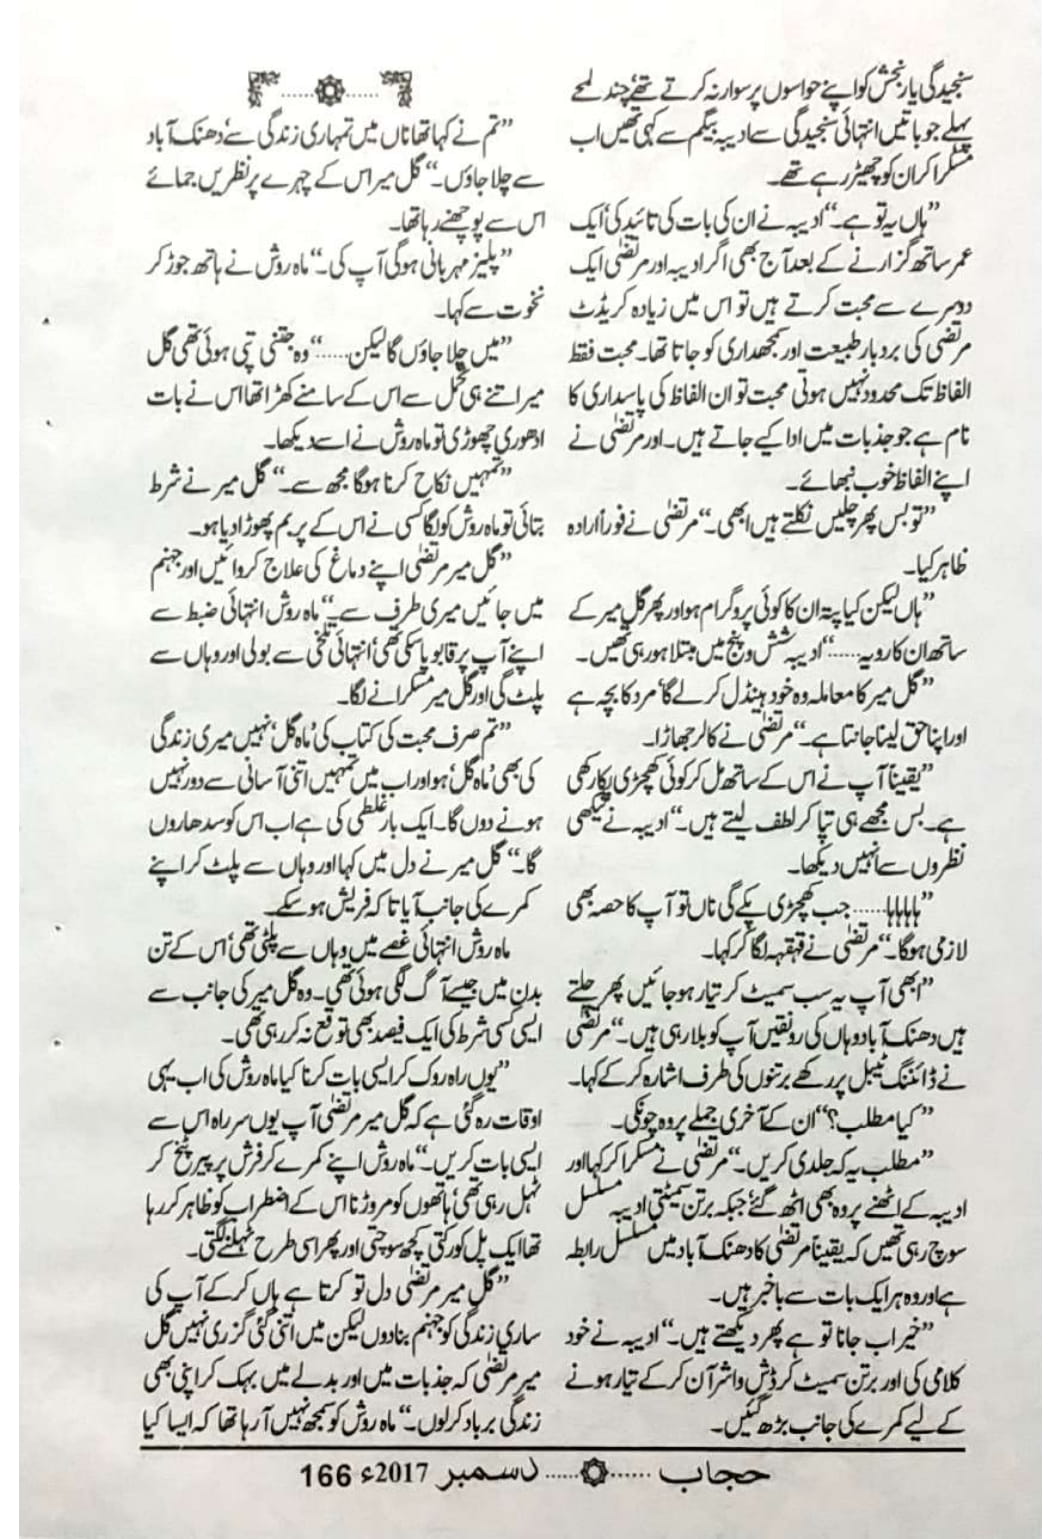 سنجیدگی یا رنجش کو اپنے حواسوں پر سوار نہ کرتے تھے، چند لمحے
پہلے جو باتیں انتہائی سنجیدگی سے ادیبہ بیگم سے کہی تھیں اب
مسکرا کر ان کو چھیڑ رہے تھے۔
”ہاں یہ تو ہے۔“ ادیبہ نے ان کی بات کی تائید کی، ایک
عمر ساتھ گزارنے کے بعد آج بھی اگر ادیبہ اور مرتضیٰ ایک
دوسرے سے محبت کرتے ہیں تو اس میں زیادہ کریڈٹ
مرتضیٰ کی بردبار طبیعت اور سمجھداری کو جاتا تھا۔ محبت فقط
الفاظ تک محدود نہیں ہوتی محبت تو ان الفاظ کی پاسداری کا
نام ہے جو جذبات میں ادا کیے جاتے ہیں۔ اور مرتضیٰ نے
اپنے الفاظ خوب نبھائے۔
”تو بس پھر چلیں نکلتے ہیں ابھی۔“ مرتضیٰ نے فوراً ارادہ
ظاہر کیا۔
”ہاں لیکن کیا پتہ ان کا کوئی پروگرام ہو اور پھر گل میر کے
ساتھ ان کا رویہ......“ ادیبہ شش و پنج میں مبتلا ہو رہی تھیں۔
”گل میر کا معاملہ وہ خود ہینڈل کرلے گا، مرد کا بچہ ہے
اور اپنا حق لینا جانتا ہے۔“ مرتضیٰ نے کالر جھاڑا۔
”یقیناً آپ نے اس کے ساتھ مل کر کوئی کھچڑی پکا رکھی
ہے۔ بس مجھے ہی تپا کر لطف لیتے ہیں۔“ ادیبہ نے تیکھی
نظروں سے انہیں دیکھا۔
”ہاہاہاہا...... جب کھچڑی پکے گی ناں تو آپ کا حصہ بھی
لازمی ہوگا۔“ مرتضیٰ نے قہقہہ لگا کر کہا۔
”ابھی آپ یہ سب سمیٹ کر تیار ہو جائیں پھر چلتے
ہیں دھنک آباد وہاں کی رونقیں آپ کو بلا رہی ہیں۔“ مرتضیٰ
نے ڈائننگ ٹیبل پر رکھے برتنوں کی طرف اشارہ کر کے کہا۔
”کیا مطلب؟“ ان کے آخری جملے پر وہ چونکی۔
”مطلب یہ کہ جلدی کریں۔“ مرتضیٰ نے مسکرا کر کہا اور
ادیبہ کے اٹھنے پر وہ بھی اٹھ گئے، جبکہ برتن سمیٹتی ادیبہ مسلسل
سوچ رہی تھیں کہ یقیناً مرتضیٰ کا دھنک آباد میں مسلسل رابطہ
ہے اور وہ ہر ایک بات سے باخبر ہیں۔
”خیر اب جانا تو ہے پھر دیکھتے ہیں۔“ ادیبہ نے خود
کلامی کی اور برتن سمیٹ کر ڈش واشر آن کر کے تیار ہونے
کے لیے کمرے کی جانب بڑھ گئیں۔
”تم نے کہا تھا ناں میں تمہاری زندگی سے، دھنک آباد
سے چلا جاؤں۔“ گل میر اس کے چہرے پر نظریں جمائے
اس سے پوچھنے رہا تھا۔
”پلیز مہربانی ہوگی آپ کی۔“ ماہ روش نے ہاتھ جوڑ کر
نخوت سے کہا۔
”میں چلا جاؤں گا لیکن......“ وہ جتنی تپی ہوئی تھی گل
میر اتنے ہی تحمل سے اس کے سامنے کھڑا تھا اس نے بات
ادھوری چھوڑی تو ماہ روش نے اسے دیکھا۔
”تمہیں نکاح کرنا ہوگا مجھ سے۔“ گل میر نے شرط
بتائی تو ماہ روش کو لگا کسی نے اس کے پر بم پھوڑا دیا ہو۔
”گل میر مرتضیٰ اپنے دماغ کی علاج کروائیں اور جہنم
میں جائیں میری طرف سے۔“ ماہ روش انتہائی ضبط سے
اپنے آپ پر قابو پا سکی تھی، انتہائی تلخی سے بولی اور وہاں سے
پلٹ گی اور گل میر مسکرانے لگا۔
”تم صرف محبت کی کتاب کی ’ماہ گل‘ نہیں میری زندگی
کی بھی ’ماہ گل‘ ہو اور اب میں تمہیں اتنی آسانی سے دور نہیں
ہونے دوں گا۔ ایک بار غلطی کی ہے اب اس کو سدھاروں
گا۔“ گل میر نے دل میں کہا اور وہاں سے پلٹ کر اپنے
کمرے کی جانب آیا تاکہ فریش ہو سکے۔
ماہ روش انتہائی غصے میں وہاں سے پلٹی تھی، اس کے تن
بدن میں جیسے آگ لگی ہوئی تھی۔ وہ گل میر کی جانب سے
ایسی کسی شرط کی ایک فیصد بھی توقع نہ کر رہی تھی۔
”یوں راہ روک کر ایسی بات کرنا کیا ماہ روش کی اب یہی
اوقات رہ گئی ہے کہ گل میر مرتضیٰ آپ یوں سر راہ اس سے
ایسی بات کریں۔“ ماہ روش اپنے کمرے کر فرش پر پیر پٹخ کر
ٹہل رہی تھی، ہاتھوں کو مروڑنا اس کے اضطراب کو ظاہر کر رہا
تھا ایک پل کو رکتی کچھ سوچتی اور پھر اسی طرح ٹہلنے لگتی۔
”گل میر مرتضیٰ دل تو کرتا ہے ہاں کر کے آپ کی
ساری زندگی کو جہنم بنا دوں لیکن میں اتنی گئی گزری نہیں گل
میر مرتضیٰ کہ جذبات میں اور بدلے میں بہک کر اپنی بھی
زندگی برباد کرلوں۔“ ماہ روش کو سمجھ نہیں آ رہا تھا کہ ایسا کیا
حجاب ............ دسمبر 2017ء 166